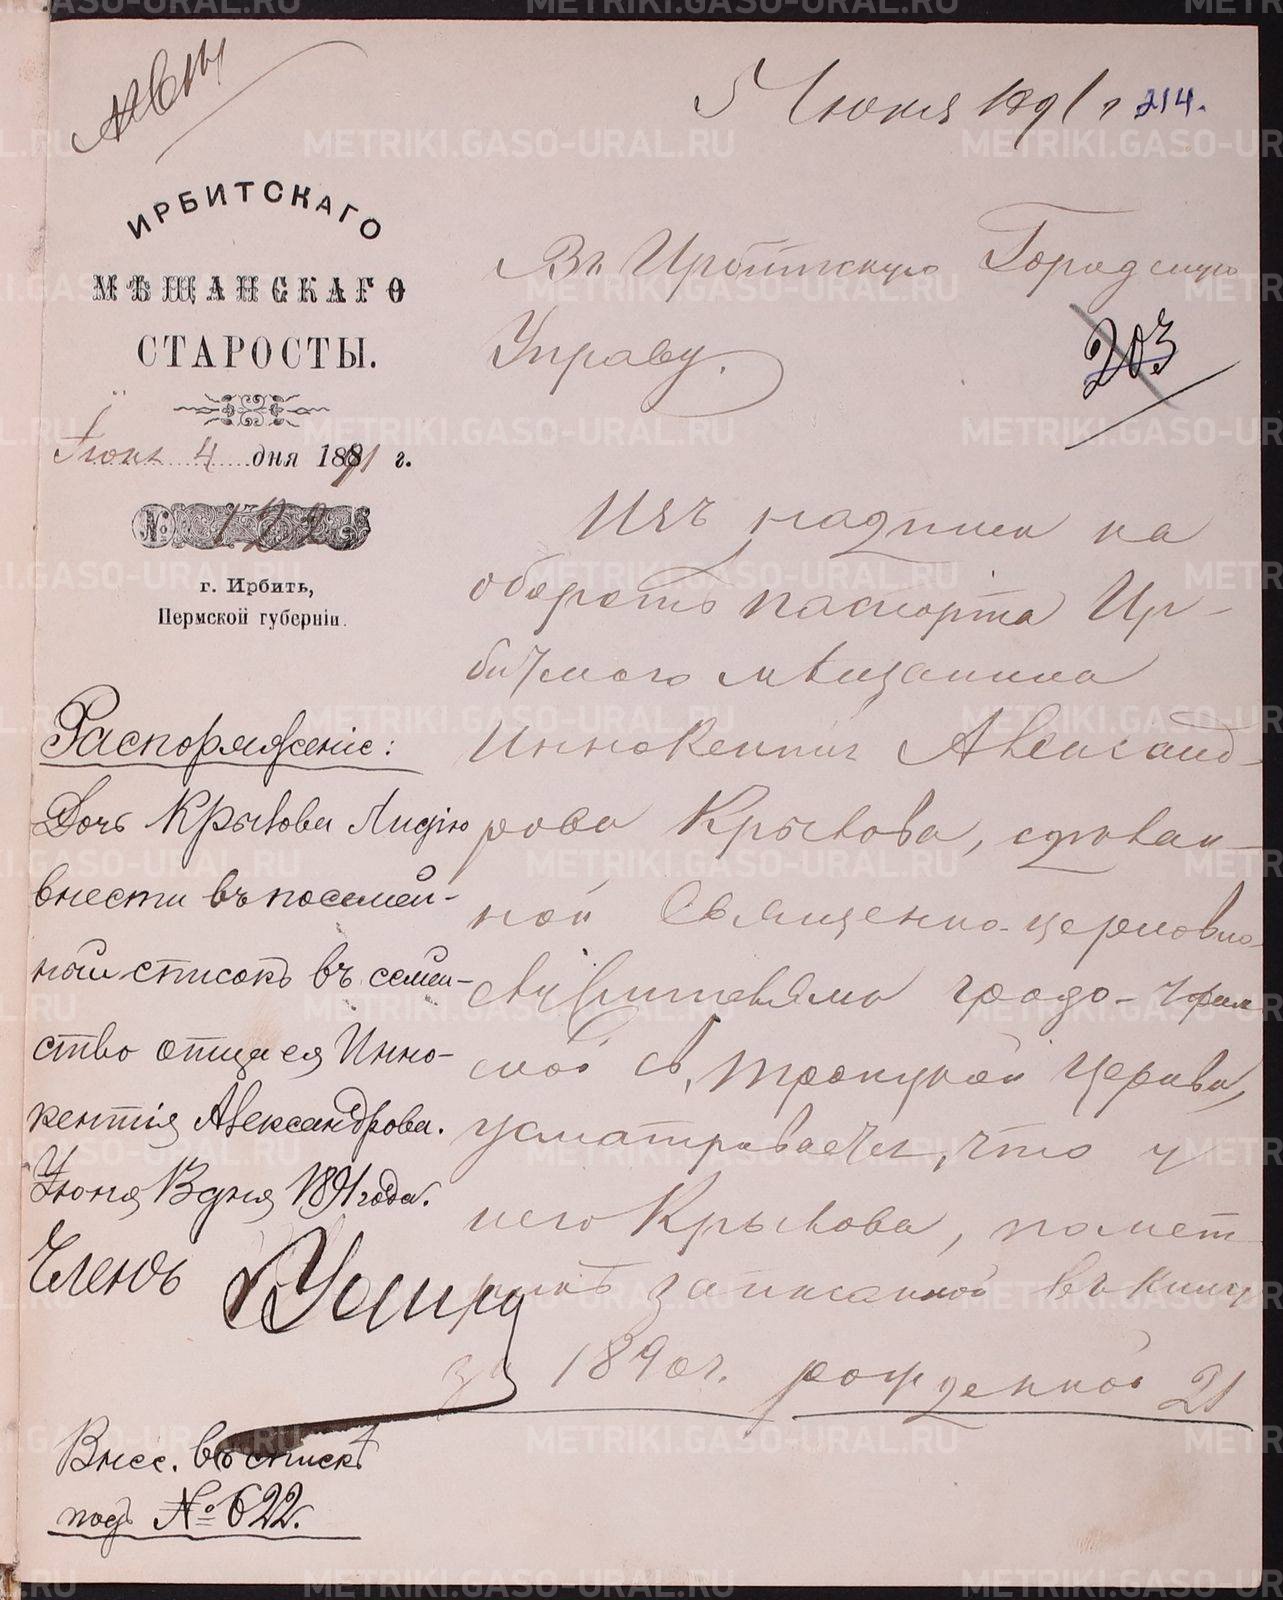 5 Июня 1891 г
214.
ИРБИТСКАГО
МѢЩАНСКАГО
СТАРОСТЫ.
Іюня 4 дня 1891 г.
№ 122
г. Ирбить,
Пермской губерніи.
Въ Ирбитскую Городскую
Управу.
203
Изъ надписи на
оборотѣ паспорта Ир-
битскаго мѣщанина
Иннокентія Александ-
рова Крылова, сдѣлан-
ной Священно-церковно
служителями градо-Ирбит
ской Св. Троицкой церкви,
усматривается, что у
него Крылова, по метри
записанной въ книгу
за 1890 г. рожденной 21
Распоряженіе:
Дочь Крылова Лидію
внести въ посемей-
ный списокъ въ семей-
ство отца ея Инно-
кентія Александрова.
Іюня 13 дня 1891 года.
Членъ
Внес. въ списк.
подъ № 622.
METRIKI.GASO-URAL.RU